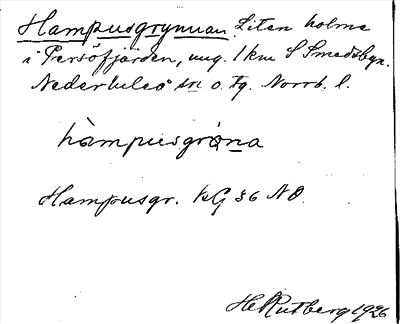 Hampusgrynnan. Liten holme
i Persöfjärden, ung. 1 km S Smedsbyn.
Nederluleå sn o. tg. Norrb. l.
hàmpusgróna
Hampusgr. kG 36 NO.
H Rutberg 1926